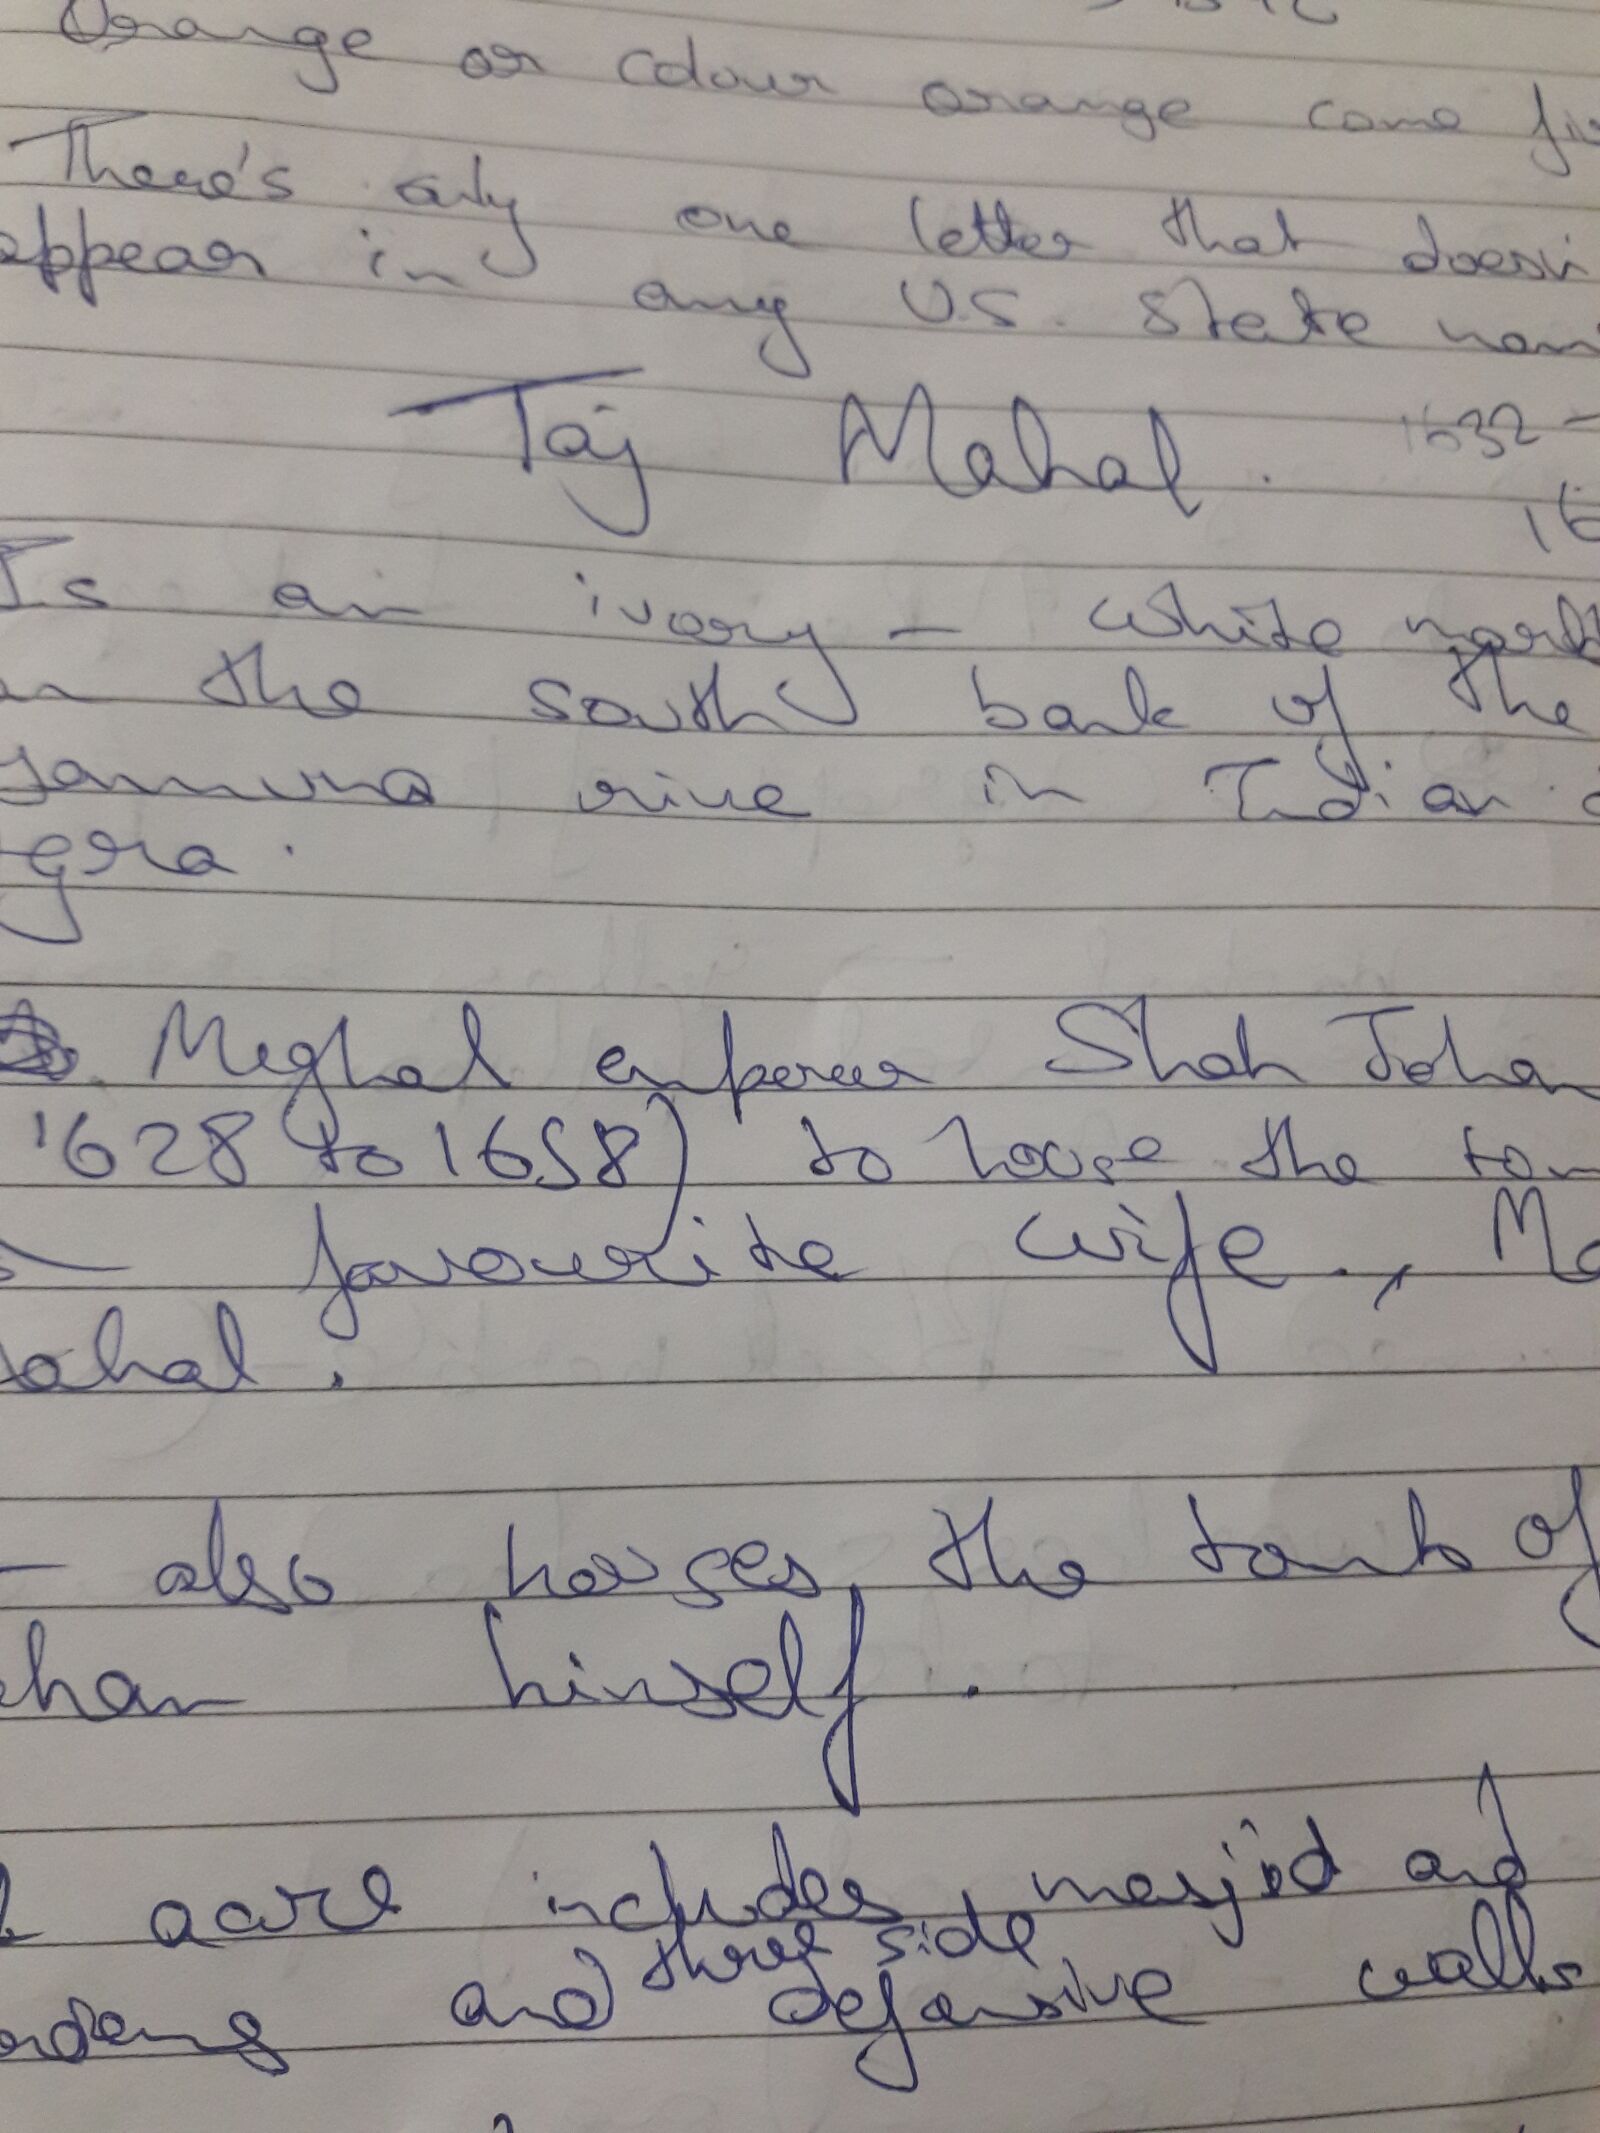 Orange or colour orange come
There's only one letter that doesn
appear in any U.S. State nam
Taj Mahal. 1632 -
16
Is an ivory - white marb
on the south bank of the
yamuna rive in Indian
gra.
Meghal emperer Shah Jahan
1628 to 1658) to house the tom
favourite wife., Mo
ahal.
- also houses, the tomb of
han himself.
acre includes, masjid and
three side
and defensive walls